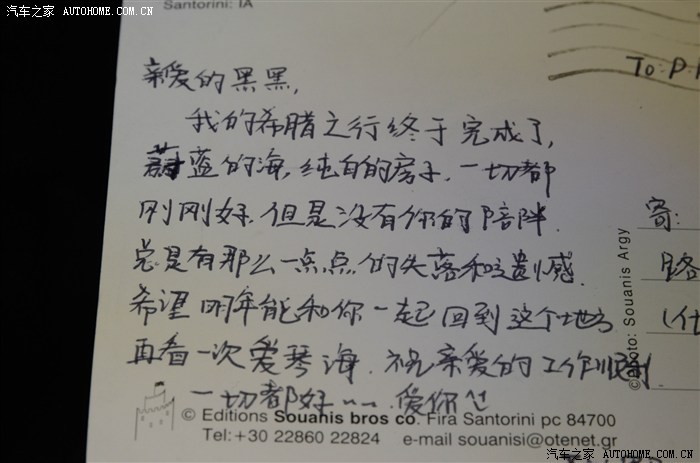 汽车之家 AUTOHOME.COM.CN
Santorini: IA
To: P.
亲爱的黑黑,
我的希腊之行终于完成了,
蔚蓝的海,纯白的房子,一切都
刚刚好.但是没有你的陪伴
总是有那么一点点的失落和遗憾.
希望明年能和你一起回到这个地方
再看一次爱琴海.祝亲爱的工作顺利
一切都好……爱你
寄:
路
(什
Photo: Souanis Argy
© Editions Souanis bros co. Fira Santorini pc 84700
Tel:+30 22860 22824 e-mail souanisi@otenet.gr
汽车之家 AUTOHOME.COM.CN